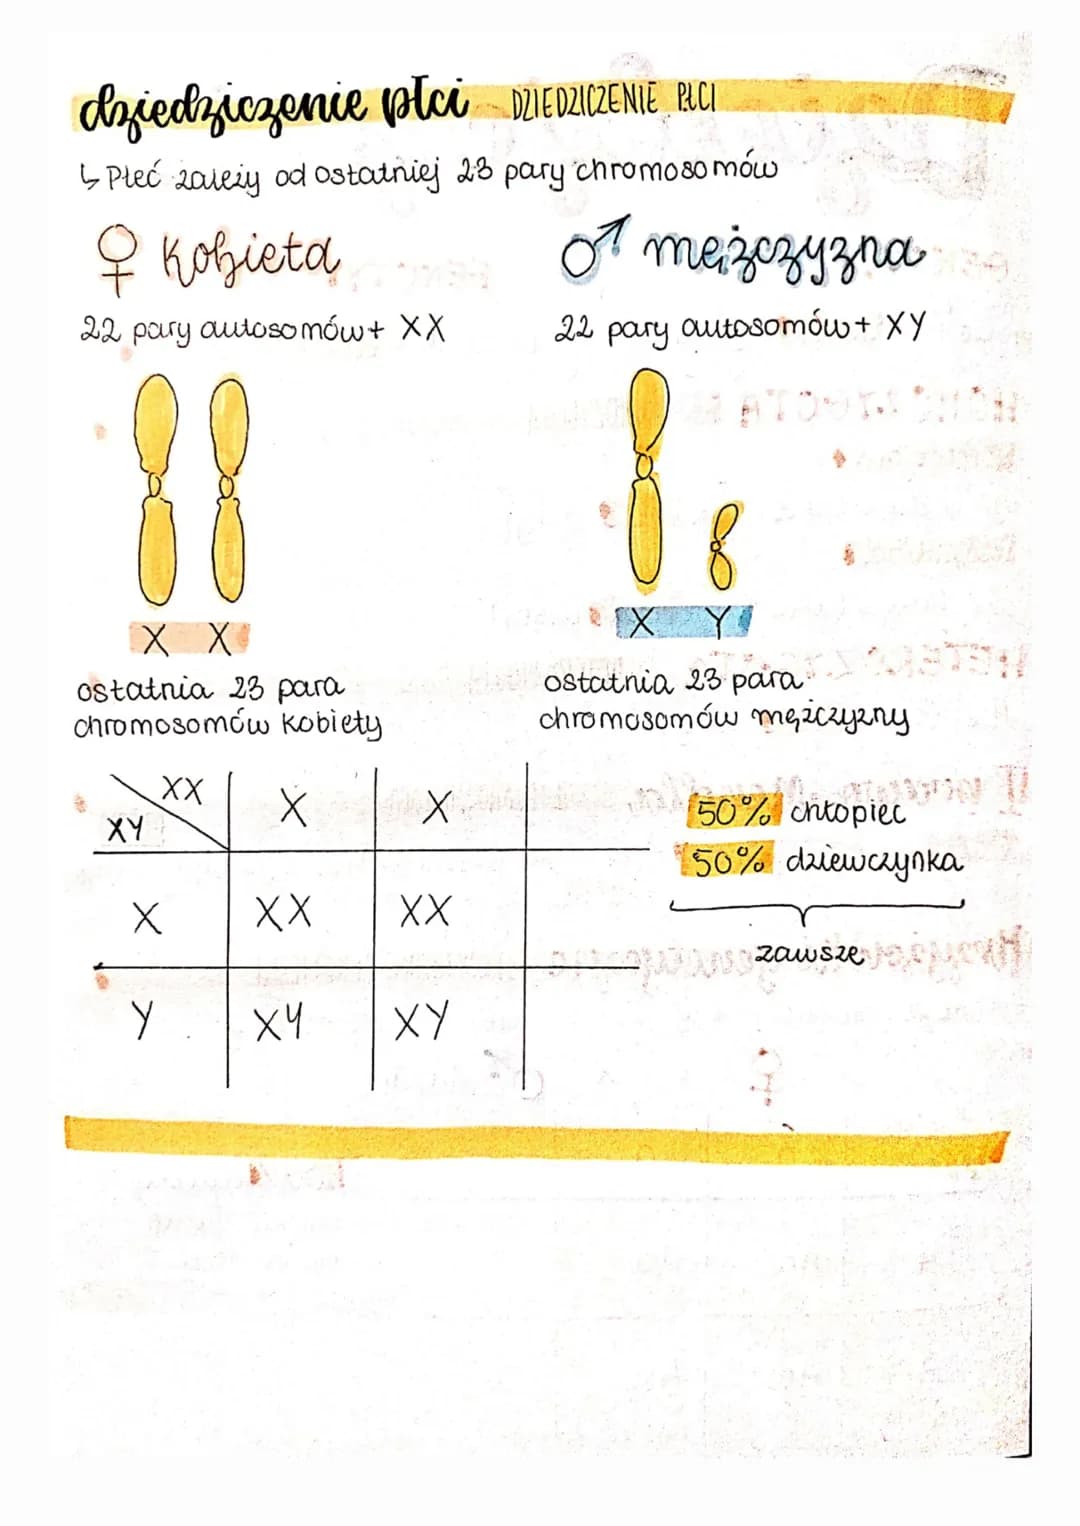 dziedziczenie płci DZIEDZICZENIE PŁCI
↳ Płeć zależy od ostatniej 23 pary chromosomów
♀ kobieta
22 pary autosomów + XX
X X
ostatnia 23 para
chromosomów kobiety
♂ mężczyzna
22 pary autosomów + XY
X Y
ostatnia 23 para
chromosomów mężczyzny
XX
XY
X X
X XX XX
Y XY XY
50% chłopiec
50% dziewczynka
zawsze